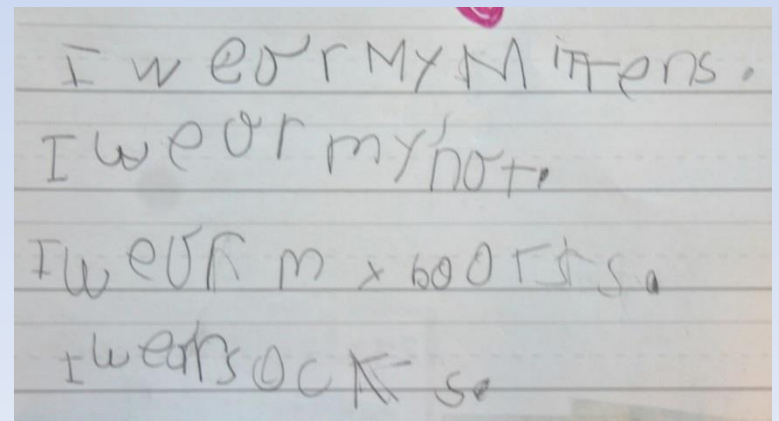 I wear my Mittens.
I wear my hat.
I wear my boots.
I wear socks.